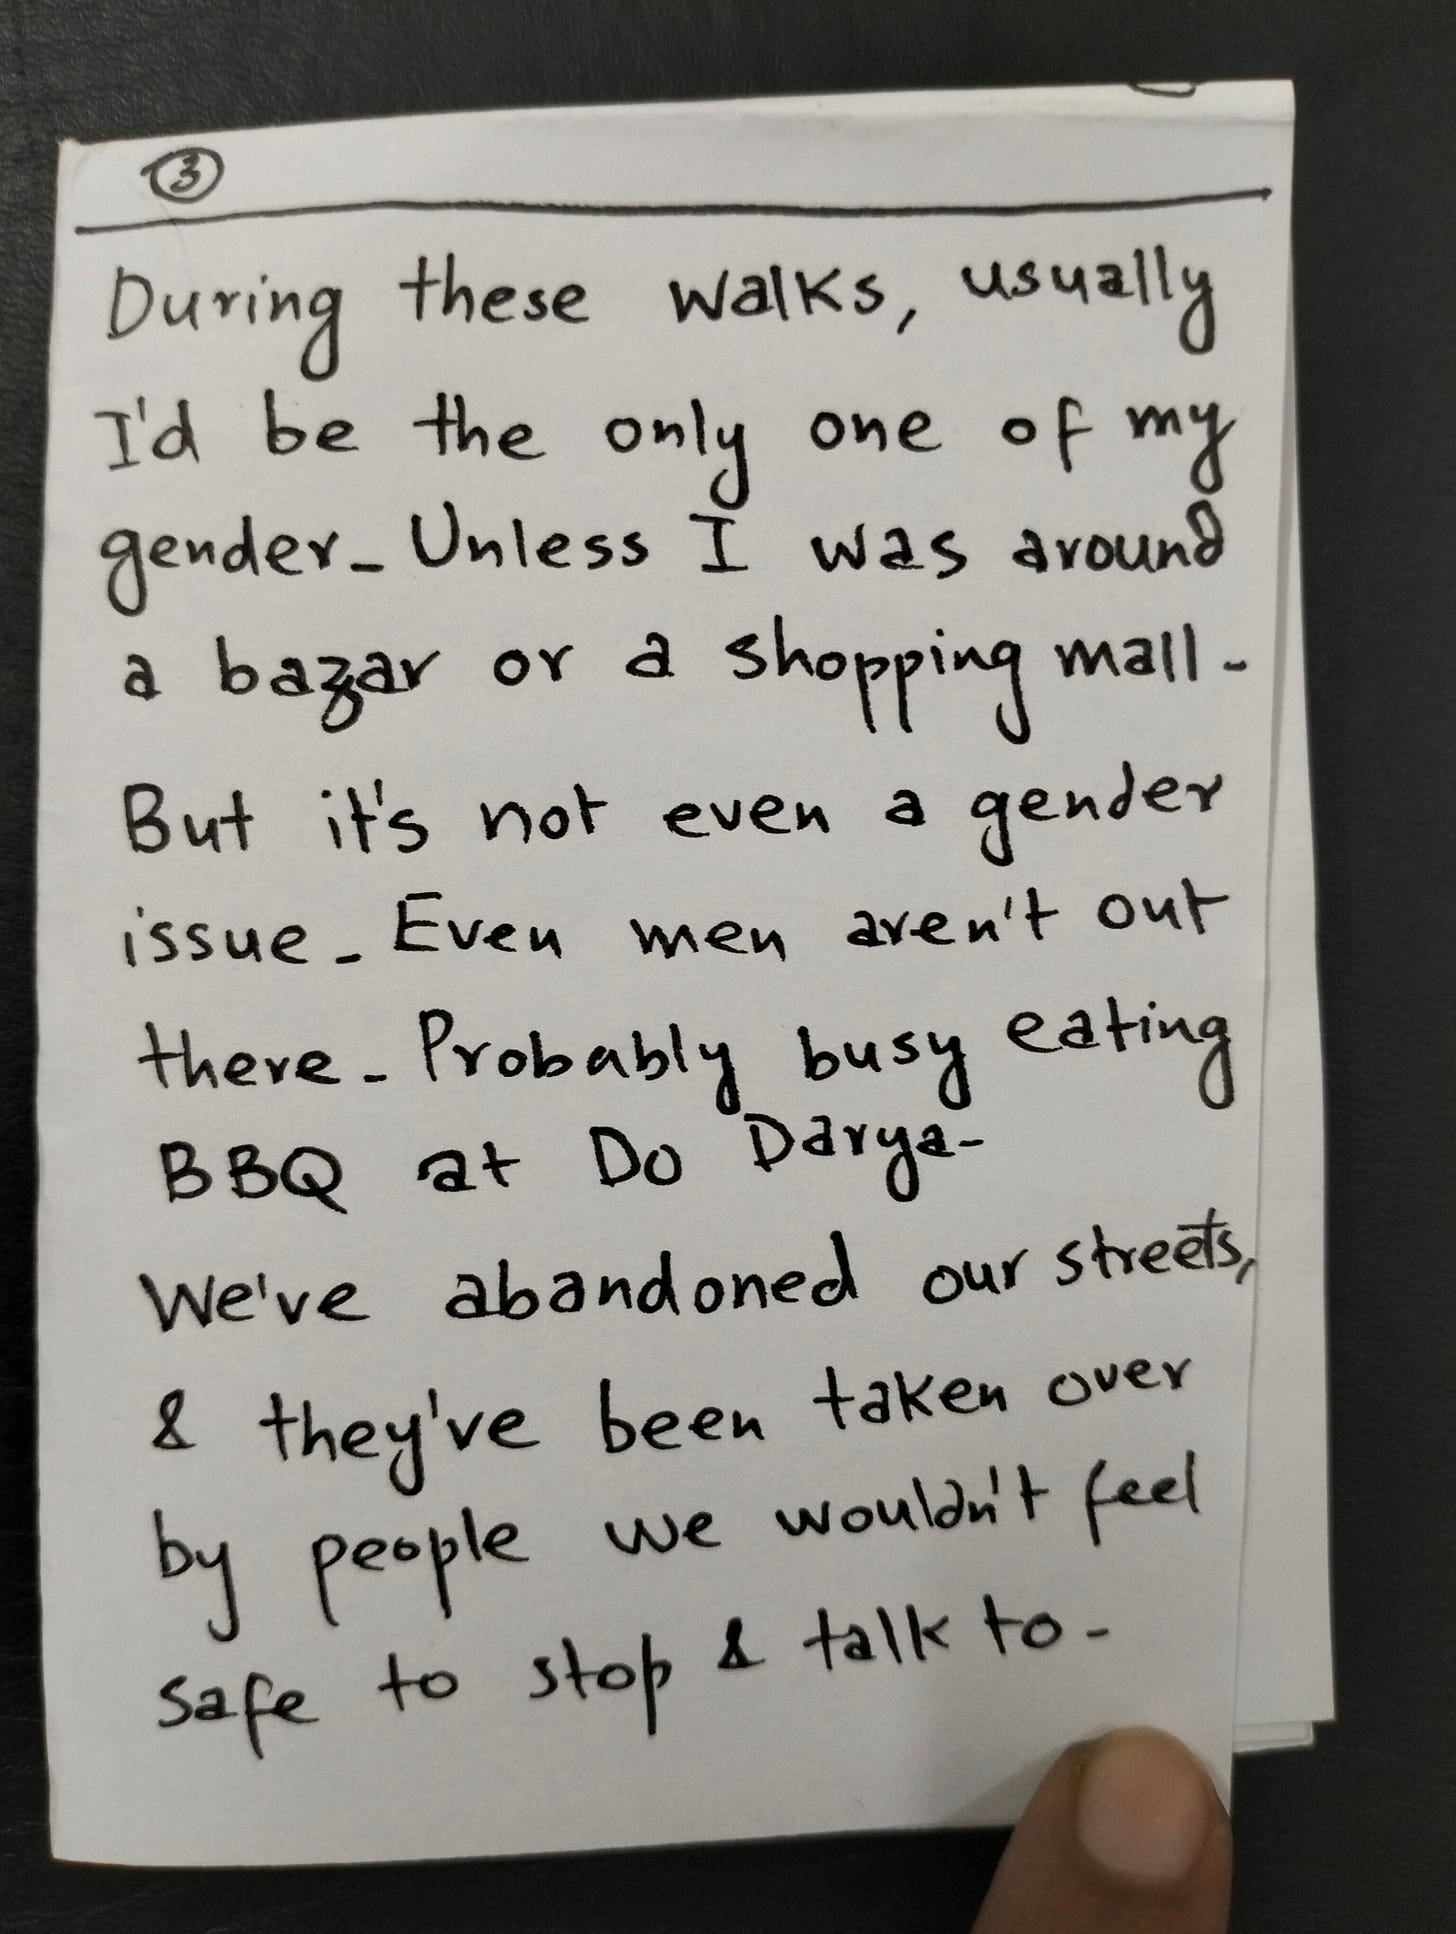 3
During these walks, usually
I'd be the only one of my
gender_ Unless I was around
a bazar or a shopping mall -
But it's not even a gender
issue_ Even men aren't out
there_ Probably busy eating
BBQ at Do Darya-
We've abandoned our streets,
& they've been taken over
by people we wouldn't feel
safe to stop & talk to -